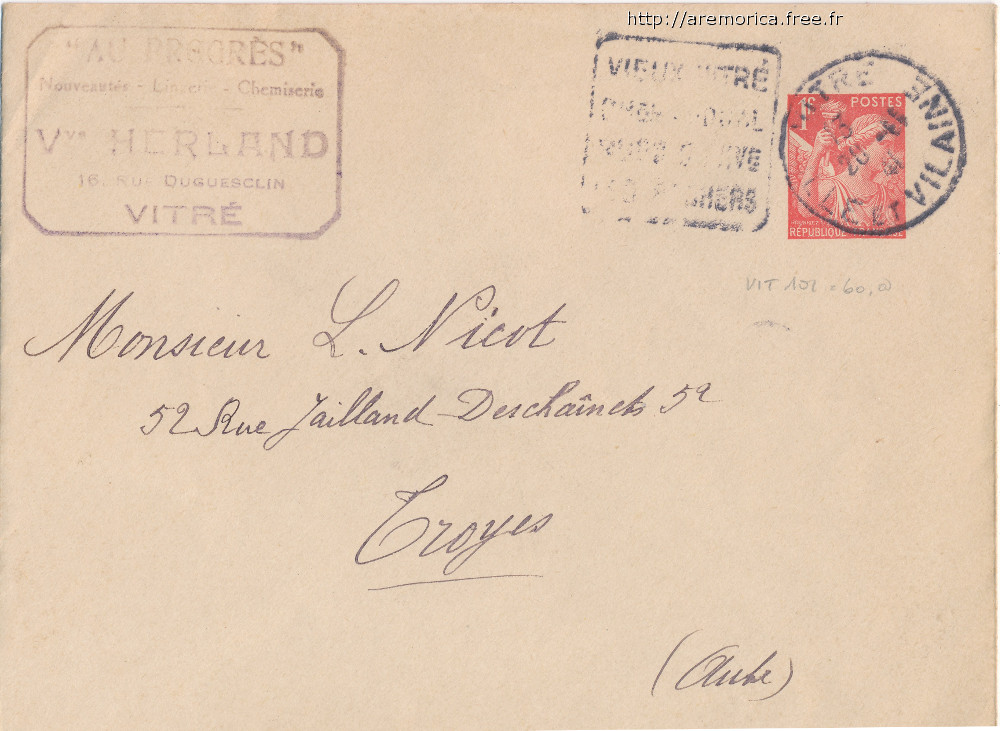 http://aremorica.free.fr
"AU PROGRÈS"
Nouveautés - Lingerie - Chemiserie
Vve HERLAND
16, RUE DUGUESCLIN
VITRÉ
VIEUX VITRÉ
ROCHERS
1F POSTES
RÉPUBLIQUE FRANÇAISE
VITRÉ
ILLE ET VILAINE
VIT 101 = 60,00
Monsieur L. Nicot
52 Rue Jailland-Deschaînets 52
Troyes
(Aube)